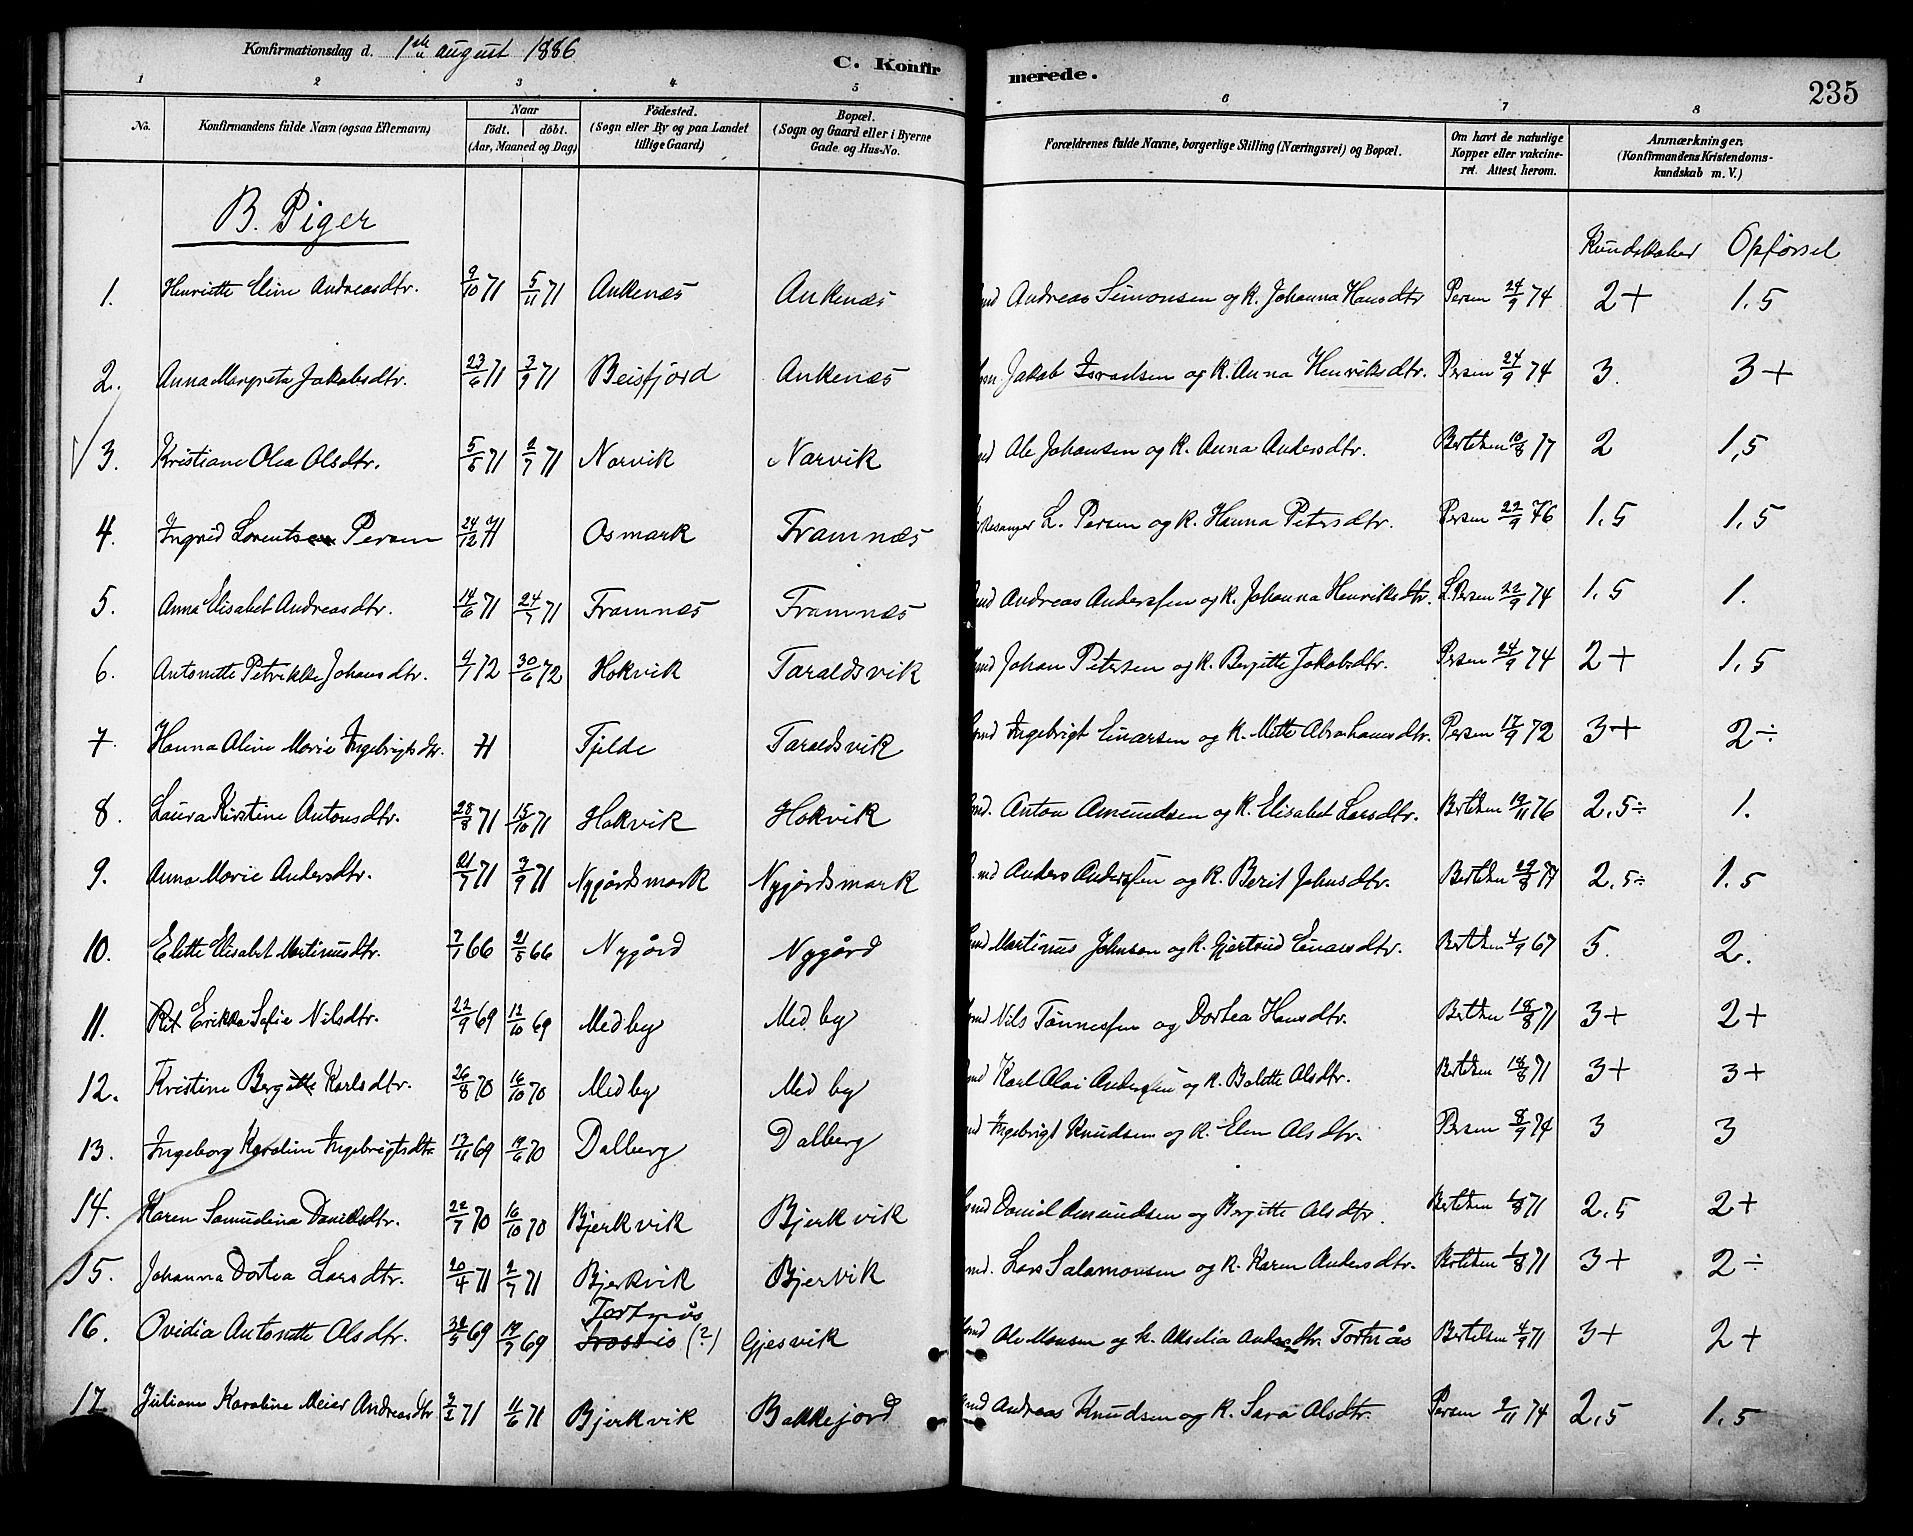 Konfirmationsdag d. 1ste August 1886
C. Konfirmerede.
235
1 2 3 4 5 6 7 8
No. Konfirmandens fulde Navn (ogsaa Efternavn) Naar født. døbt. (Aar, Maaned og Dag) Födested. (Sogn eller By og paa Landet tillige Gaard) Bopæl. (Sogn og Gaard eller i Byerne Gade og Hus-No. Forældrenes fulde Navne, borgerlige Stilling (Næringsvei) og Bopæl. Om havt de naturlige Kopper eller vakcineret. Attest herom. Anmærkninger. (Konfirmandens Kristendomskundskab m. V.)
B. Piger
Kundskaber Opførsel
1. Henriette Eline Andreasdtr. 9/10 71 5/11 71 Ankenæs Ankenæs Andreas Simonsen og K. Johanna Hansdtr Persen 24/9 74 2+ 1.5
2. Anna Margreta Jakobsdtr. 23/6 71 3/9 71 Beisfjord Ankenæs Jakob Israelsen og K. Anna Henriksdtr. Persen 24/9 74 3. 3+
3. Kristiane Olea Olsdtr. 5/5 71 2/7 71 Narvik Narvik Ole Johansen og K. Anna Andersdtr. Bertelsen 10/8 77 2 1,5
4. Ingrid Lorentsen Persen 24/12 71 Osmark Framnæs L. Persen og K. Hanna Petersdtr. Persen 22/9 76 1.5 1.5
5. Anna Elisabet Andreasdtr. 14/6 71 24/7 71 Framnæs Framnæs Andreas Anderssen og K. Johanna Henriksdtr. L. Persen 22/9 74 1.5 1.
6. Antonette Petrikke Johansdtr. 4/1 72 30/6 72 Hokvik Taraldsvik Johan Petersen og K. Bergitte Jakobsdtr. Persen 24/9 74 2+ 1.5
7. Hanna Aline Marie Ingebrigtsdtr. 71 Fjelde Taraldsvik Ingebrigt Einarsen og K. Mette Abrahamsdtr. Persen 17/9 72 3+ 2÷
8. Laura Kirstine Antonsdtr. 28/8 71 15/10 71 Hokvik Hokvik Anton Amundsen og K. Elisabet Larsdtr. Bertelsen 19/11 76 2.5÷ 1.
9. Anna Marie Andersdtr. 21/7 71 3/9 71 Nygårdsmark Nygårdsmark Anders Anderssen og K. Berit Johnsdtr. Bertelsen 29/8 77 2.5÷ 1.5
10. Elette Elisabet Martinusdtr. 7/1 66 21/5 66 Nygård Nygård Martinus Johnsen og K. Gjertrud Einarsdtr. Bertelsen 4/9 67 5. 2.
11. Rit Erikka Sofie Nilsdtr. 22/9 69 17/10 69 Medby Medby Nils Tønnessen og Dortea Hansdtr. Bertelsen 18/8 71 3+ 2+
12. Kristine Bergitte Karlsdtr. 26/8 70 16/10 70 Medby Medby Karl Olai Anderssen og K. Bolette Olsdtr. Bertelsen 18/8 71 3+ 3+
13. Ingeborg Karoline Ingebrigtsdtr 17/11 69 19/6 70 Dalberg Dalberg Ingebrigt Knudsen og K. Elen Olsdtr. Persen 8/9 74 3 3
14. Karen Samudina Danielsdtr. 22/7 70 16/10 70 Bjerkvik Bjerkvik Daniel Amundsen og Bergitte Olsdtr. Bertelsen 1/8 71 2.5 2+
15. Johanna Dortea Larsdtr. 20/4 71 2/7 71 Bjerkvik Bjervik Lars Salamonsen og K. Karen Andersdtr. Bertelsen 1/8 71 3+ 2÷
16. Ovidia Antonette Olsdtr. 69 69 Tortnås (?) Gjesvik Ole Monsen og K. Akselia Andersdtr. Tortnås Bertelsen 4/9 71 3+ 2+
17 Juliane Karoline Meier Andreasdtr 71 11/6 71 Bjerkvik Bakkejord Andreas Knudsen og K. Sara Olsdtr. Persen 9/11 74 2.5 1.5